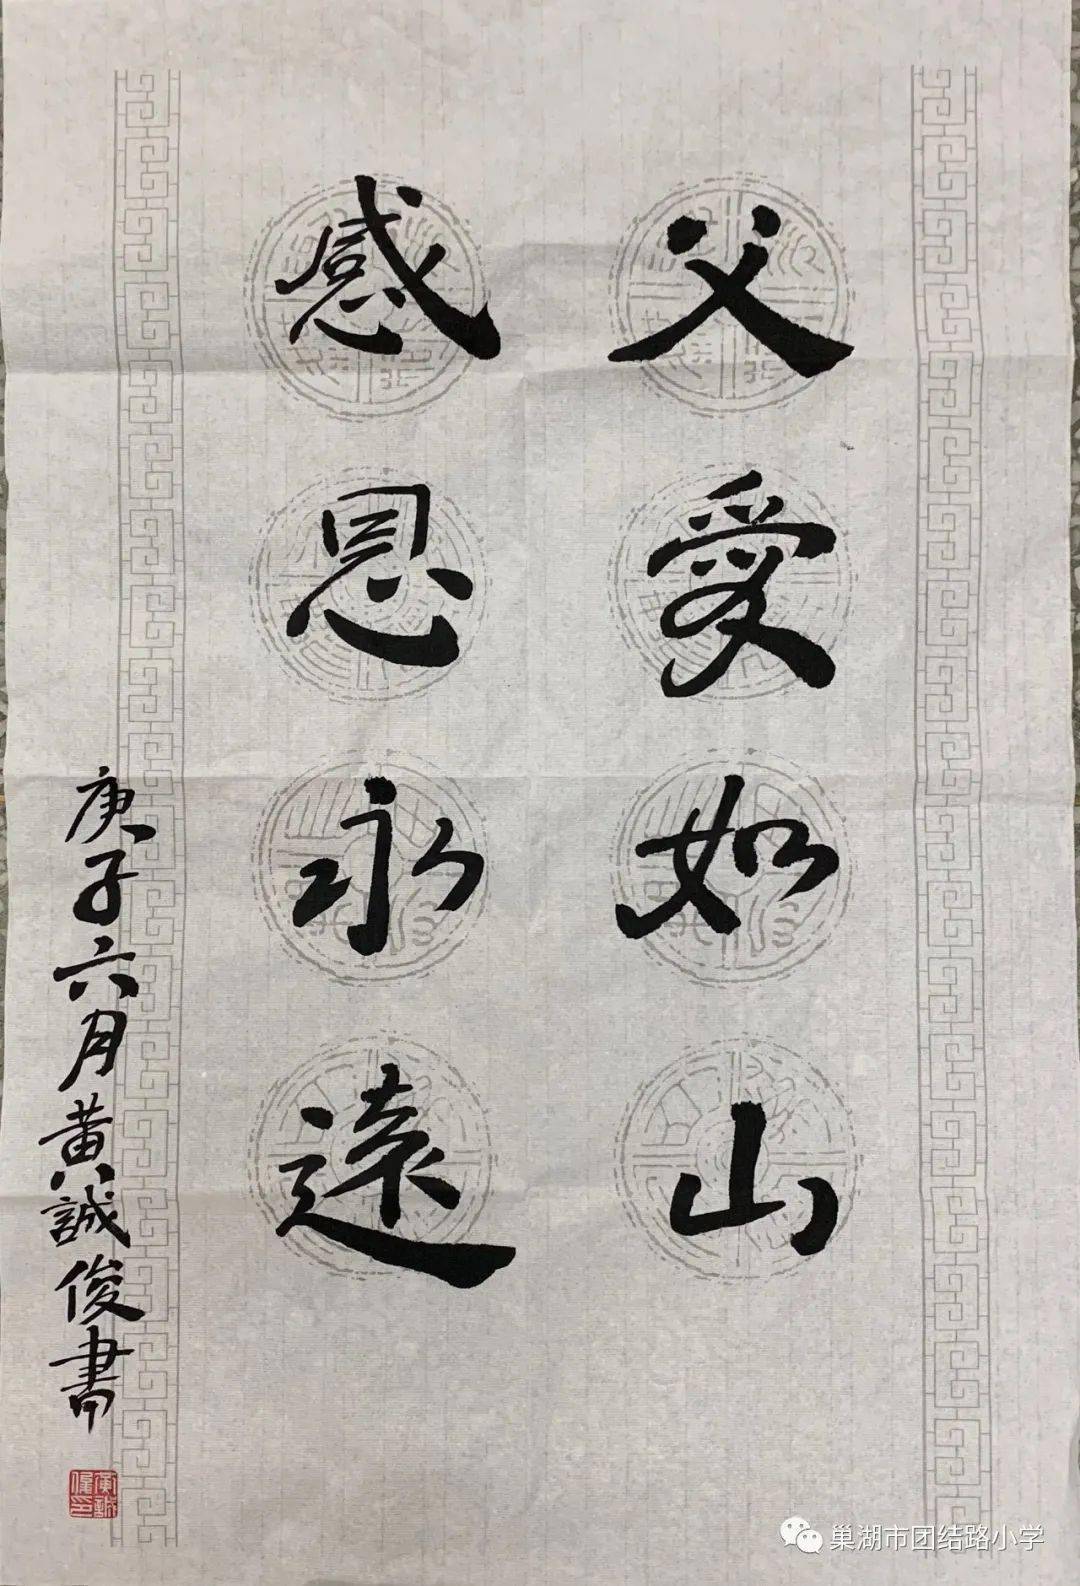 父愛如山
感恩永遠
庚子六月黄誠俊書
巢湖市团结路小学